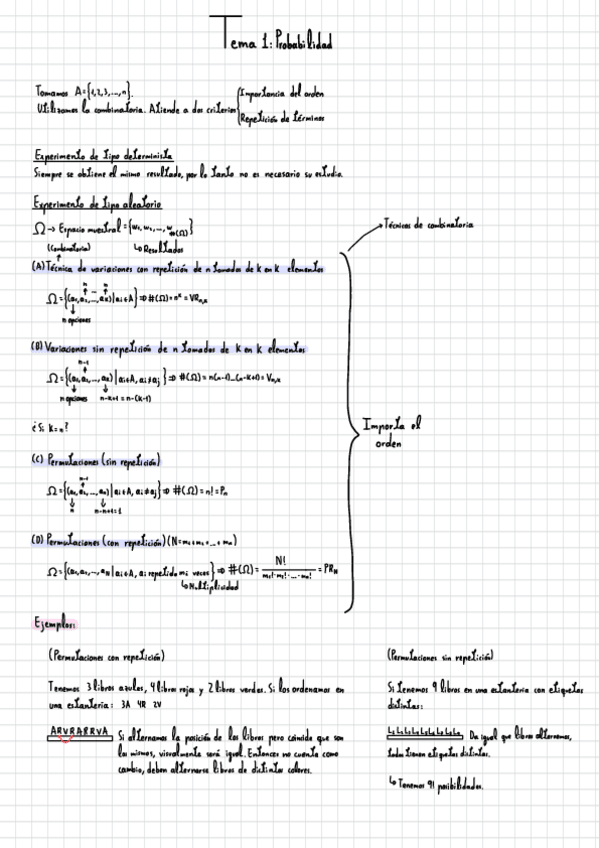 Tema 1: Probabilidad
Tomamos A={1,2,3,...,n}.
Utilizamos la combinatoria. Atiende a dos criterios
Importancia del orden
Repetición de términos
Experimento de tipo determinista
Siempre se obtiene el mismo resultado, por lo tanto no es necesario su estudio.
Experimento de tipo aleatorio
Ω → Espacio muestral = {w₁, w₂, ..., w#(Ω)}
(Combinatoria)
↳ Resultados
→ Técnicas de combinatoria
(A) Técnica de variaciones con repetición de n tomados de k en k elementos
n n
Ω = {(a₁, a₂, ..., aₖ) | aᵢ ∈ A} ⇒ #(Ω) = nᵏ = VRₙ,ₖ
n opciones
(B) Variaciones sin repetición de n tomados de k en k elementos
n-1
Ω = {(a₁, a₂, ..., aₖ) | aᵢ ∈ A, aᵢ ≠ aⱼ} ⇒ #(Ω) = n(n-1)...(n-k+1) = Vₙ,ₖ
n opciones n-k+1 = n-(k-1)
¿Si k=n?
Importa el
orden
(C) Permutaciones (sin repetición)
n-1
Ω = {(a₁, a₂, ..., aₙ) | aᵢ ∈ A, aᵢ ≠ aⱼ} ⇒ #(Ω) = n! = Pₙ
n n-n+1=1
(D) Permutaciones (con repetición) (N = m₁ + m₂ + ... + mₙ)
Ω = {(a₁, a₂, ..., aN | aᵢ ∈ A, aᵢ repetido mᵢ veces} ⇒ #(Ω) = N! / m₁! · m₂! · ... · mₙ! = PRN
↳ Multiplicidad
Ejemplos:
(Permutaciones con repetición)
Tenemos 3 libros azules, 4 libros rojos y 2 libros verdes. Si los ordenamos en
una estantería: 3A 4R 2V
ARVRARRVA
Si alternamos la posición de los libros pero coincide que son
los mismos, visualmente será igual. Entonces no cuenta como
cambio, deben alternarse libros de distintos colores.
(Permutaciones sin repetición)
Si tenemos 9 libros en una estantería con etiquetas
distintas:
Da igual que libros alternemos,
todos tienen etiquetas distintas.
↳ Tenemos 9! posibilidades.